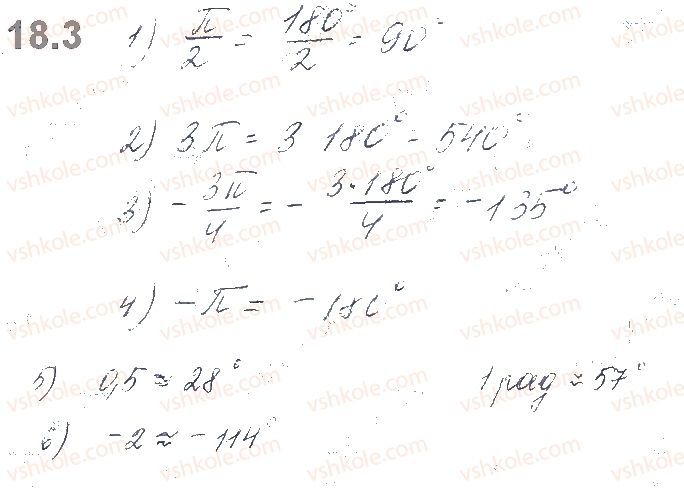 18.3
1) π/2 = 180°/2 = 90°
2) 3π = 3 180° = 540°
3) -3π/4 = -3·180°/4 = -135°
4) -π = -180°
5) 0,5 ≈ 28° 1 рад ≈ 57°
6) -2 ≈ -114°
vshkole.com